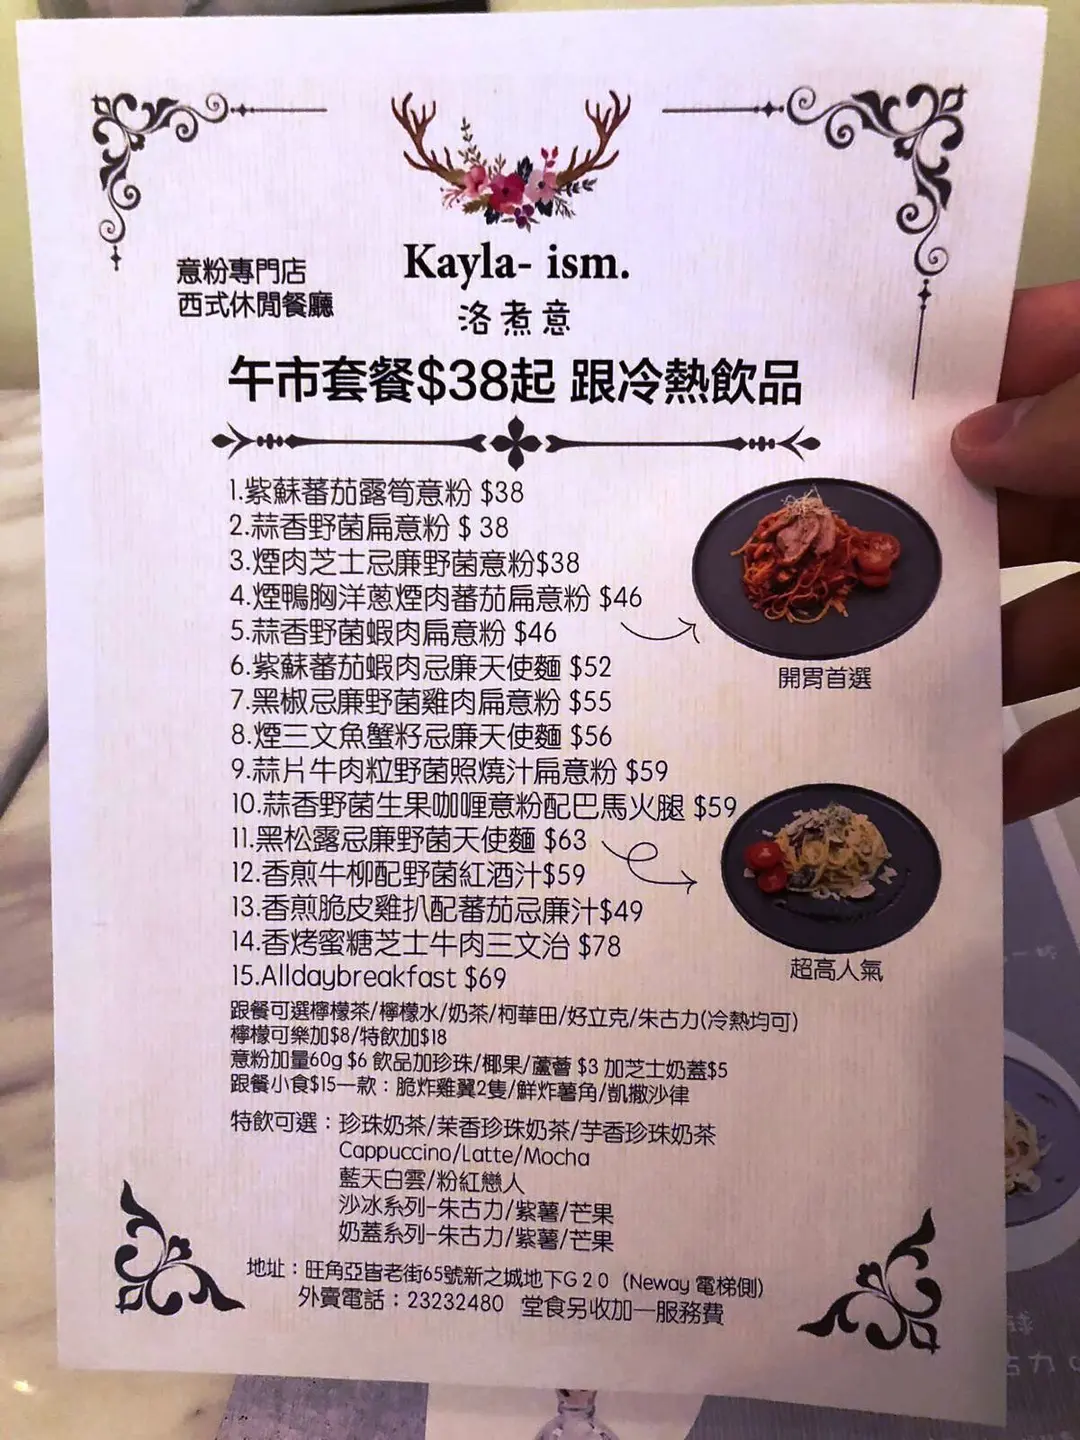 Kayla- ism.
意粉專門店
西式休閒餐廳
洛煮意
午市套餐$38起 跟冷熱飲品
1.紫蘇蕃茄露筍意粉 $38
2.蒜香野菌扁意粉 $ 38
3.煙肉芝士忌廉野菌意粉$38
4.煙鴨胸洋蔥煙肉蕃茄扁意粉 $46
5.蒜香野菌蝦肉扁意粉 $46
6.紫蘇蕃茄蝦肉忌廉天使麵 $52
7.黑椒忌廉野菌雞肉扁意粉 $55
8.煙三文魚蟹籽忌廉天使麵 $56
9.蒜片牛肉粒野菌照燒汁扁意粉 $59
10.蒜香野菌生果咖喱意粉配巴馬火腿 $59
11.黑松露忌廉野菌天使麵 $63
12.香煎牛柳配野菌紅酒汁$59
13.香煎脆皮雞扒配蕃茄忌廉汁$49
14.香烤蜜糖芝士牛肉三文治 $78
15.Alldaybreakfast $69
開胃首選
超高人氣
跟餐可選檸檬茶/檸檬水/奶茶/柯華田/好立克/朱古力(冷熱均可)
檸檬可樂加$8/特飲加$18
意粉加量60g $6 飲品加珍珠/椰果/蘆薈 $3 加芝士奶蓋$5
跟餐小食$15一款：脆炸雞翼2隻/鮮炸薯角/凱撒沙律
特飲可選：珍珠奶茶/茉香珍珠奶茶/芋香珍珠奶茶
Cappuccino/Latte/Mocha
藍天白雲/粉紅戀人
沙冰系列-朱古力/紫薯/芒果
奶蓋系列-朱古力/紫薯/芒果
地址：旺角亞皆老街65號新之城地下G20 (Neway 電梯側)
外賣電話：23232480 堂食另收加一服務費
古力